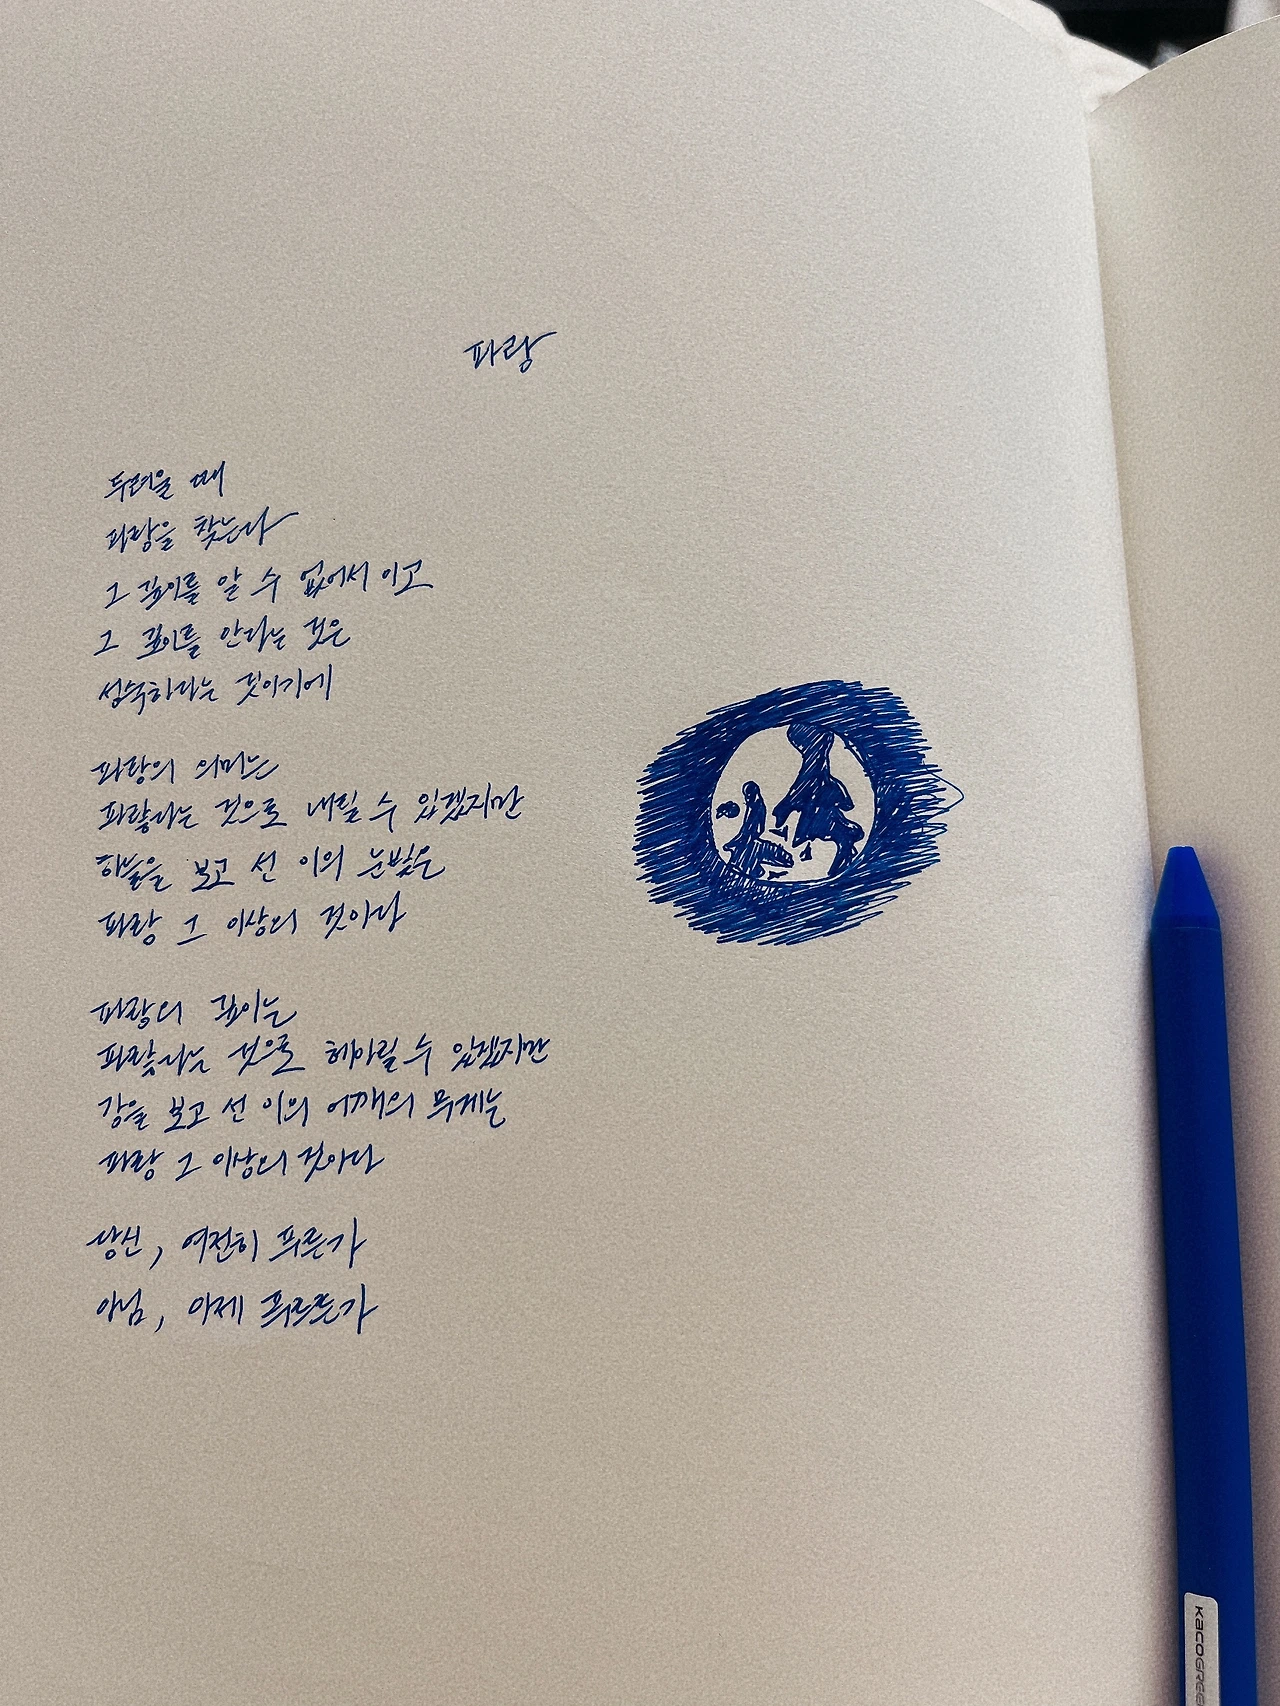 파랑
두려울 때
파랑을 찾는다
그 깊이를 알 수 없어서 이고
그 깊이를 안다는 것은
성숙하다는 것이기에
파랑의 의미는
파랗다는 것으로 내릴 수 있겠지만
하늘을 보고 선 이의 눈빛은
파랑 그 이상의 것이다
파랑의 깊이는
파랗다는 것으로 헤아릴 수 있겠지만
강을 보고 선 이의 어깨의 무게는
파랑 그 이상의 것이다
당신, 여전히 푸른가
아님, 이제 푸르른가
KACOGREE